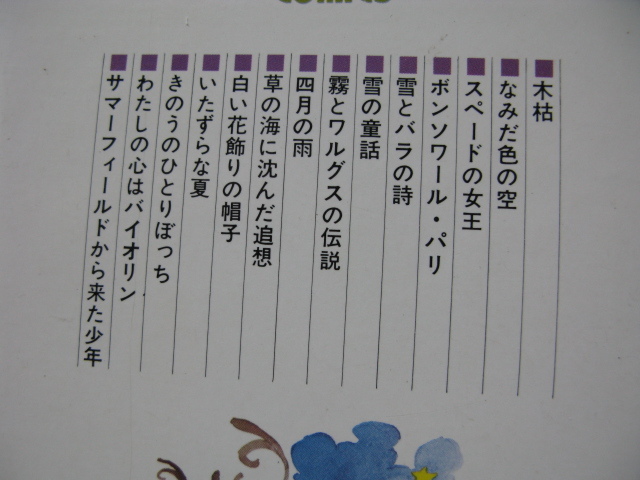 COMICS
木枯
なみだ色の空
スペードの女王
ボンソワール・パリ
雪とバラの詩
雪の童話
霧とワルグスの伝説
四月の雨
草の海に沈んだ追想
白い花飾りの帽子
いたずらな夏
きのうのひとりぼっち
わたしの心はバイオリン
サマーフィールドから来た少年